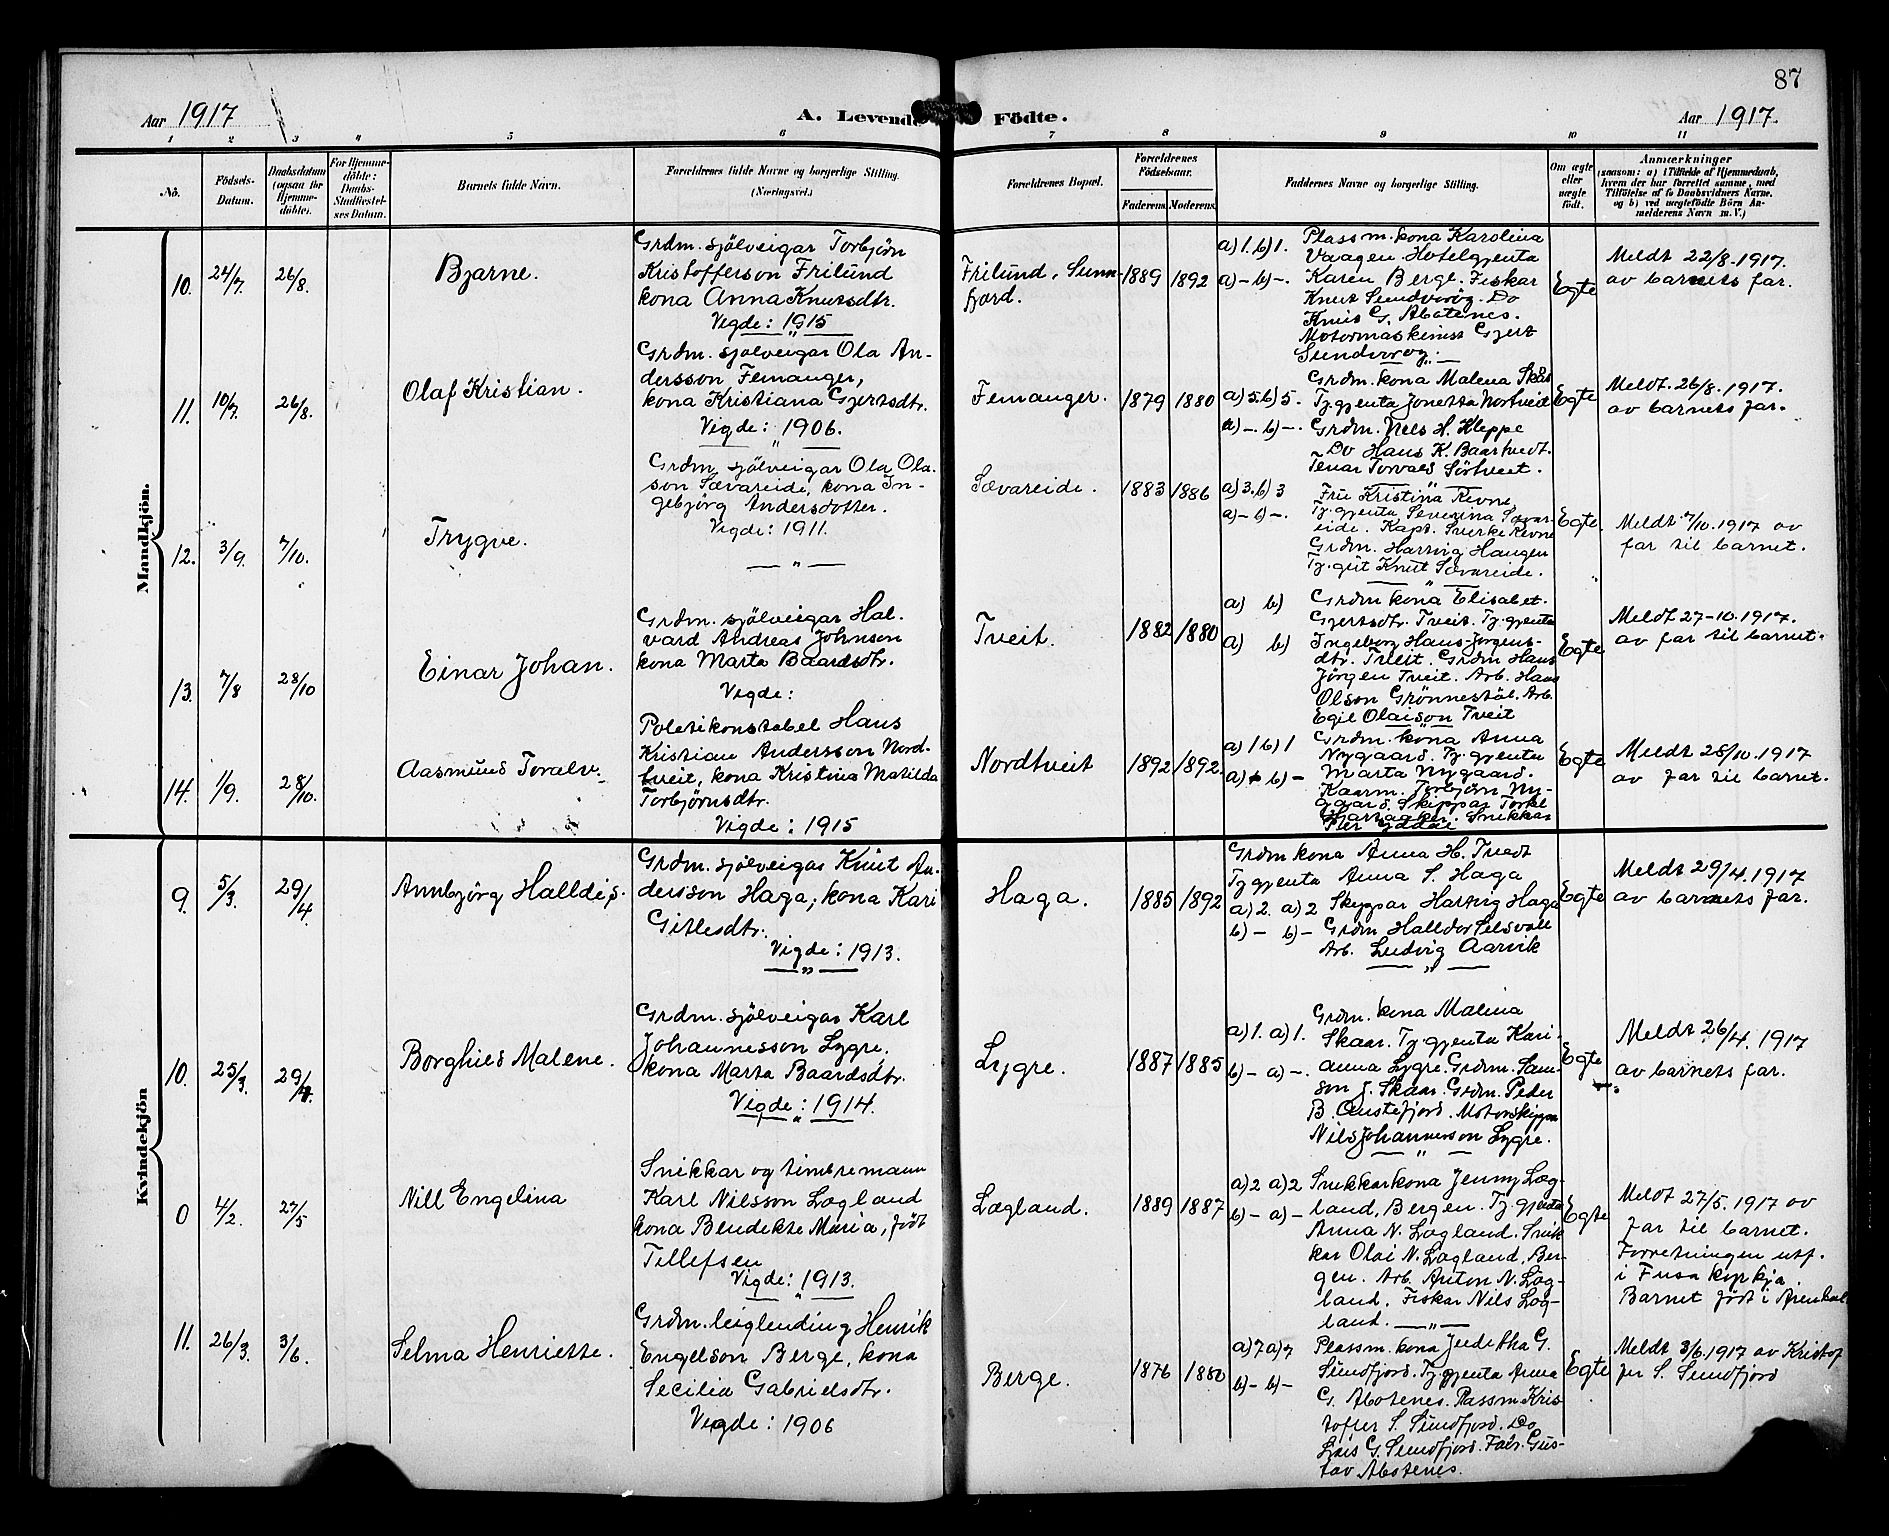 87
Aar 1917
A. Levende Födte.
Aar 1917.
1 2 3 " 5 6 7 8 9 10 11
No.
Födsels-
Datum.
Daabsdatum
(ogsaa for
Hjemme-
döbte).
For Hjemme-
döbte:
Daabs-
Stadfæstel-
ses Datum.
Barnets fulde Navn.
Forældrenes fulde Navne og borgerlige Stilling.
(Næringsvei.)
Forældrenes Bopæl.
Forældrenes
Födselsaar.
Faderens. Moderens.
Faddernes Navne og borgerlige Stilling.
Om ægte
eller
uægte
födt.
Anmærkninger
(saasom: a) i Tilfælde af Hjemmedaab,
hvem der har forrettet samme, med
Tilföielse af to Daabsvidners Navne,
og b) ved uægtefödte Börn An-
melderens Navn m. V.)
Mandkjön.
10. 24/7. 26/8. Bjarne.
Grdm. sjölveigar Torbjörn
Kristofferson Frilund
kona Anna Knutsdtr.
Vigde: 1915
Frilund, Sunn-
fjord.
1889 1892
a) 1. b) 1.
a) - b) -.
Plassm. kona Karolina
Vaagen. Hotelgjenta
Karen Berge. Fiskar
Knut Sundvorög. Do
Knut G. Abotenes.
Motormaskinist Gjert
Sundvorög.
Egte
Meldt 22/8. 1917.
av barnets far.
11. 10/7. 26/8. Olaf Kristian.
Grdm. sjölveigar Ola An-
dersson Femanger,
kona Kristiana Gjertsdtr.
Vegde: 1906.
Femanger.
1879 1880
a) 5. b) 5.
a) -. b) -.
Grdm. kona Malena Skår
Tj. gjenta Jonetta Nortveit
Grdm. Nils H. Kleppe
Do Hans K. Baartvedt.
Tenar Torvald Sörtveit.
Egte
Meldt. 26/8. 1917.
av barnets far.
12. 3/9. 7/10. Trygve.
Grdm. sjölveigar Ola Ola-
son Sævareide, kona In-
gebjörg Andersdotter.
Vigde: 1911.
Sævareide.
1883 1886
a) 3. b) 3
a) - b) -.
Fru Kristina Revne
Tj. gjenta Severina Sævar-
eide. Kapt. Sverke Revne
Grdm. Hartvig Haugen
Tj. gut Knut Sævareide.
Egte.
Meldt 7/10. 1917 av
far til barnet.
13. 7/8 28/10 Einar Johan.
Grdm. sjölveigar Hal-
vard Andreas Johnson
kona Marta Baardsdtr.
Vigde:
Tveit.
1882 1880
a) b)
a) b)
Grdm kona Elisabet.
Gjertsdtr. Tveit. Tj. gjenta
Ingeborg Hans-Jörgens-
dtr. Tveit. Grdm Hans
Jörgen Tveit. Arb. Hans
Olson Grønnestöl. Arb.
Egil Olaison Tveit
Egte
Meldt 27-10. 1917.
av far til barnet.
14. 1/9. 28/10. Aasmund Toralv.
Poletikonstabel Hans
Kristian Andersson Nord-
tveit, kona Kristina Matilda
Torbjörnsdtr.
Vigde: 1915
Nordtveit
1892 1892.
a) 1 b) 1
a) - b) -
Grdm. kona Anna
Nygaard. Tj. gjenta
Marta Nygaard.
Kaarm. Torbjörn Ny-
gaard. Skippar Torkel
Snikkar
Egte
Meldt 28/10. 1917
av far til barnet.
Kvindekjön
9. 5/3. 29/4. Annbjörg Halldis.
Grdm. sjölveigar Knut An-
dersson Haga, kona Kari
Gitlesdtr.
Vigde: 1913.
Haga.
1885 1892
Grdm kona Anna H. Tvedt
Tj gjenta Anna S. Haga
a) 2. a) 2 Skyppar Hartvig Haga
b) - b) - Grdm Halldor Selsvoll
Arb. Ludvig Aarvik
Egte
Meldt 29/4. 1917
av barnets far.
10. 25/3. 29/4. Borghild Malene.
Grdm. sjölveigar Karl
Johannesson Lygre.
kona Marta Baardsdtr.
Vigde: 1914.
Lygre.
1887 1885
a) 1. a) 1.
b) - a) -.
Grdm. kona Malina
Skaar. Tj. gjenta Kari-
anna Lygre. Grdm. Sam-
son J. Skaar. Grdm. Peder
B. Austefjord. Motorskippar
Nils Johannesson Lygre.
Egte
Meldt 26/4. 1917
av barnets far.
0 4/2. 27/5 Nill Engelina
Snikkar og timbremann
Karl Nilsson Lægland
kona Bendekte Maria, födt
Tillefsen
Vigde: 1913.
Lægland.
1889 1887
a) 2 a) 2
b) - a) -
Snikkarkona Jenny Læg-
land, Bergen. Tj. gjenta
Anna N. Lægland. Snik-
kar Olai N. Lægland, Ber-
gen. Arb. Anton N. Læg-
land. Fiskar Nils Læg-
land.
Egte
Meldt 27/5. 1917 av
far til barnet.
Forretningen utf.
i Fusa kyrkja.
Barnet födt i Arendal
11. 26/3. 3/6. Selma Henriette.
Grdm. leiglending Henrik
Engelson Berge, kona
Secilia Gabrielsdtr.
Vigde: 1906
Berge.
1876 1880
a) 7 a) 7
b) - b) -
Plassm. kona Judetha G.
Sundfjord. Tj gjenta Anna
G. Abotenes. Plassm Kris-
toffer S. Sundfjord. Do
Lars G. Sundfjord. Fabr. Gus-
tav Abotenes.
Egte
Meldt 3/6. 1917 av Kristof
fer S. Sundfjord